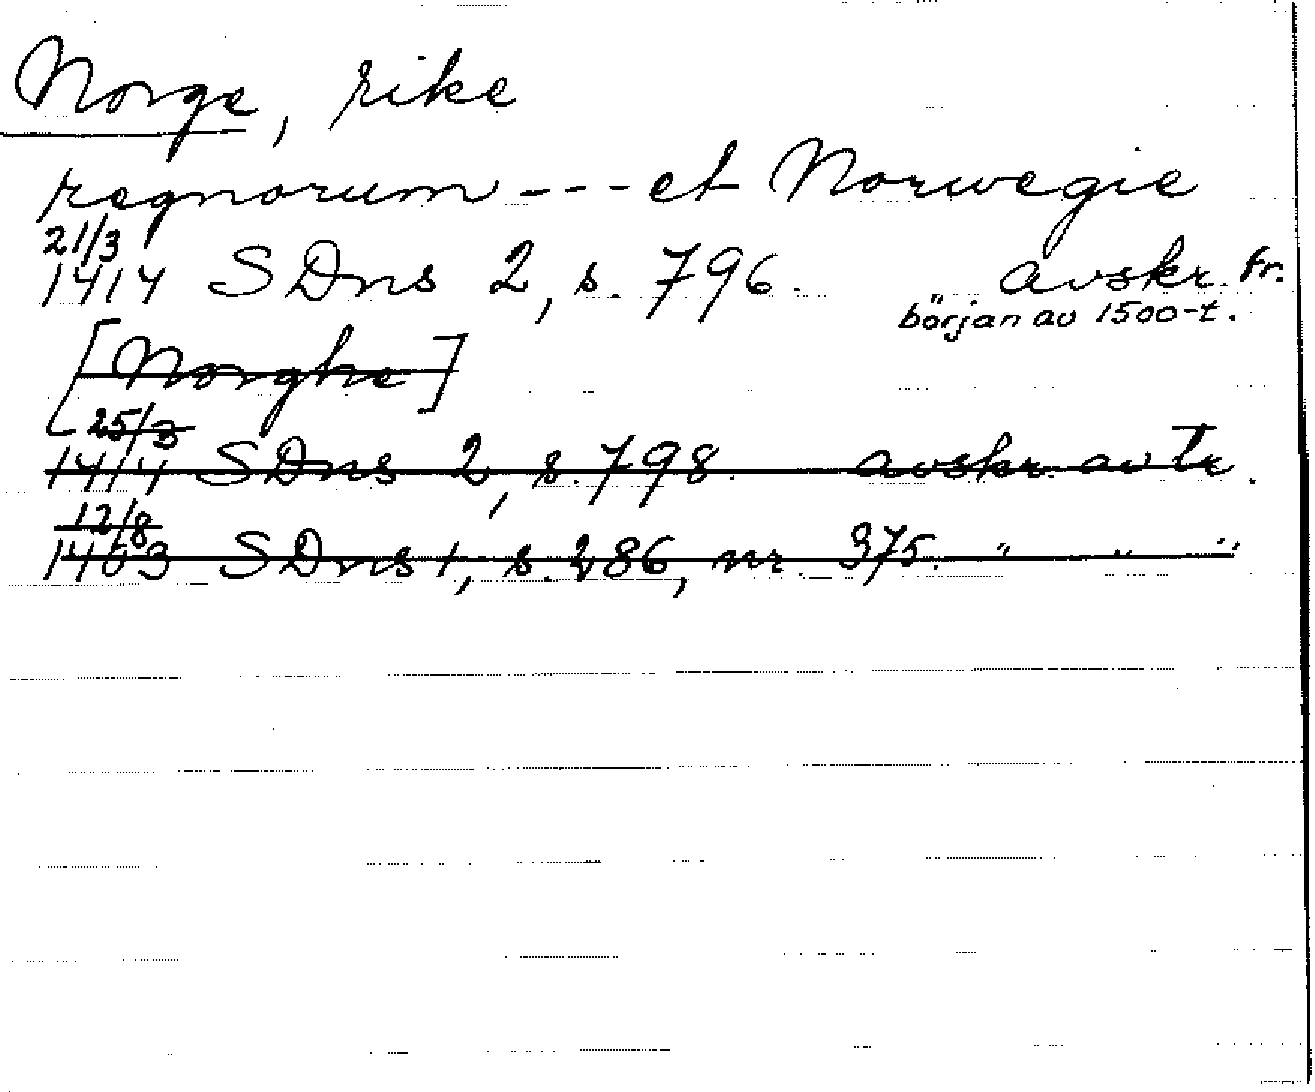 Norge, rike
regnorum --- et Norwegie
21/3
1414 SDns 2, s. 796. avskr. fr.
början av 1500-t.
[Norghe]
25/3
1414 SDns 2, s. 798. avskr. av tr.
12/8
1403 SDns 1, s. 286, nr 375. " " "